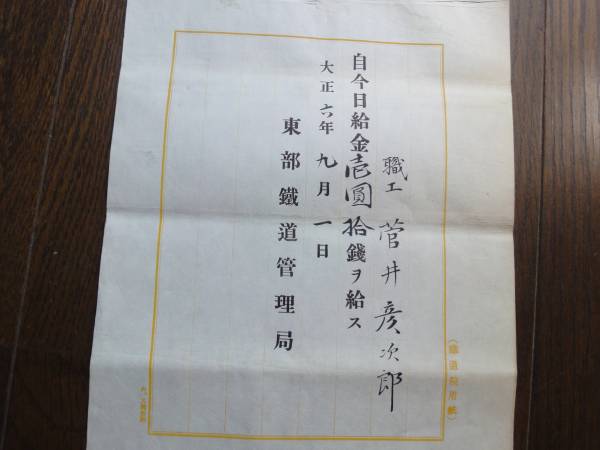 職工 菅井彦次郎
自今日給金壱圓拾錢ヲ給ス
大正六年九月一日
東部鐵道管理局
(鐵道院用紙)